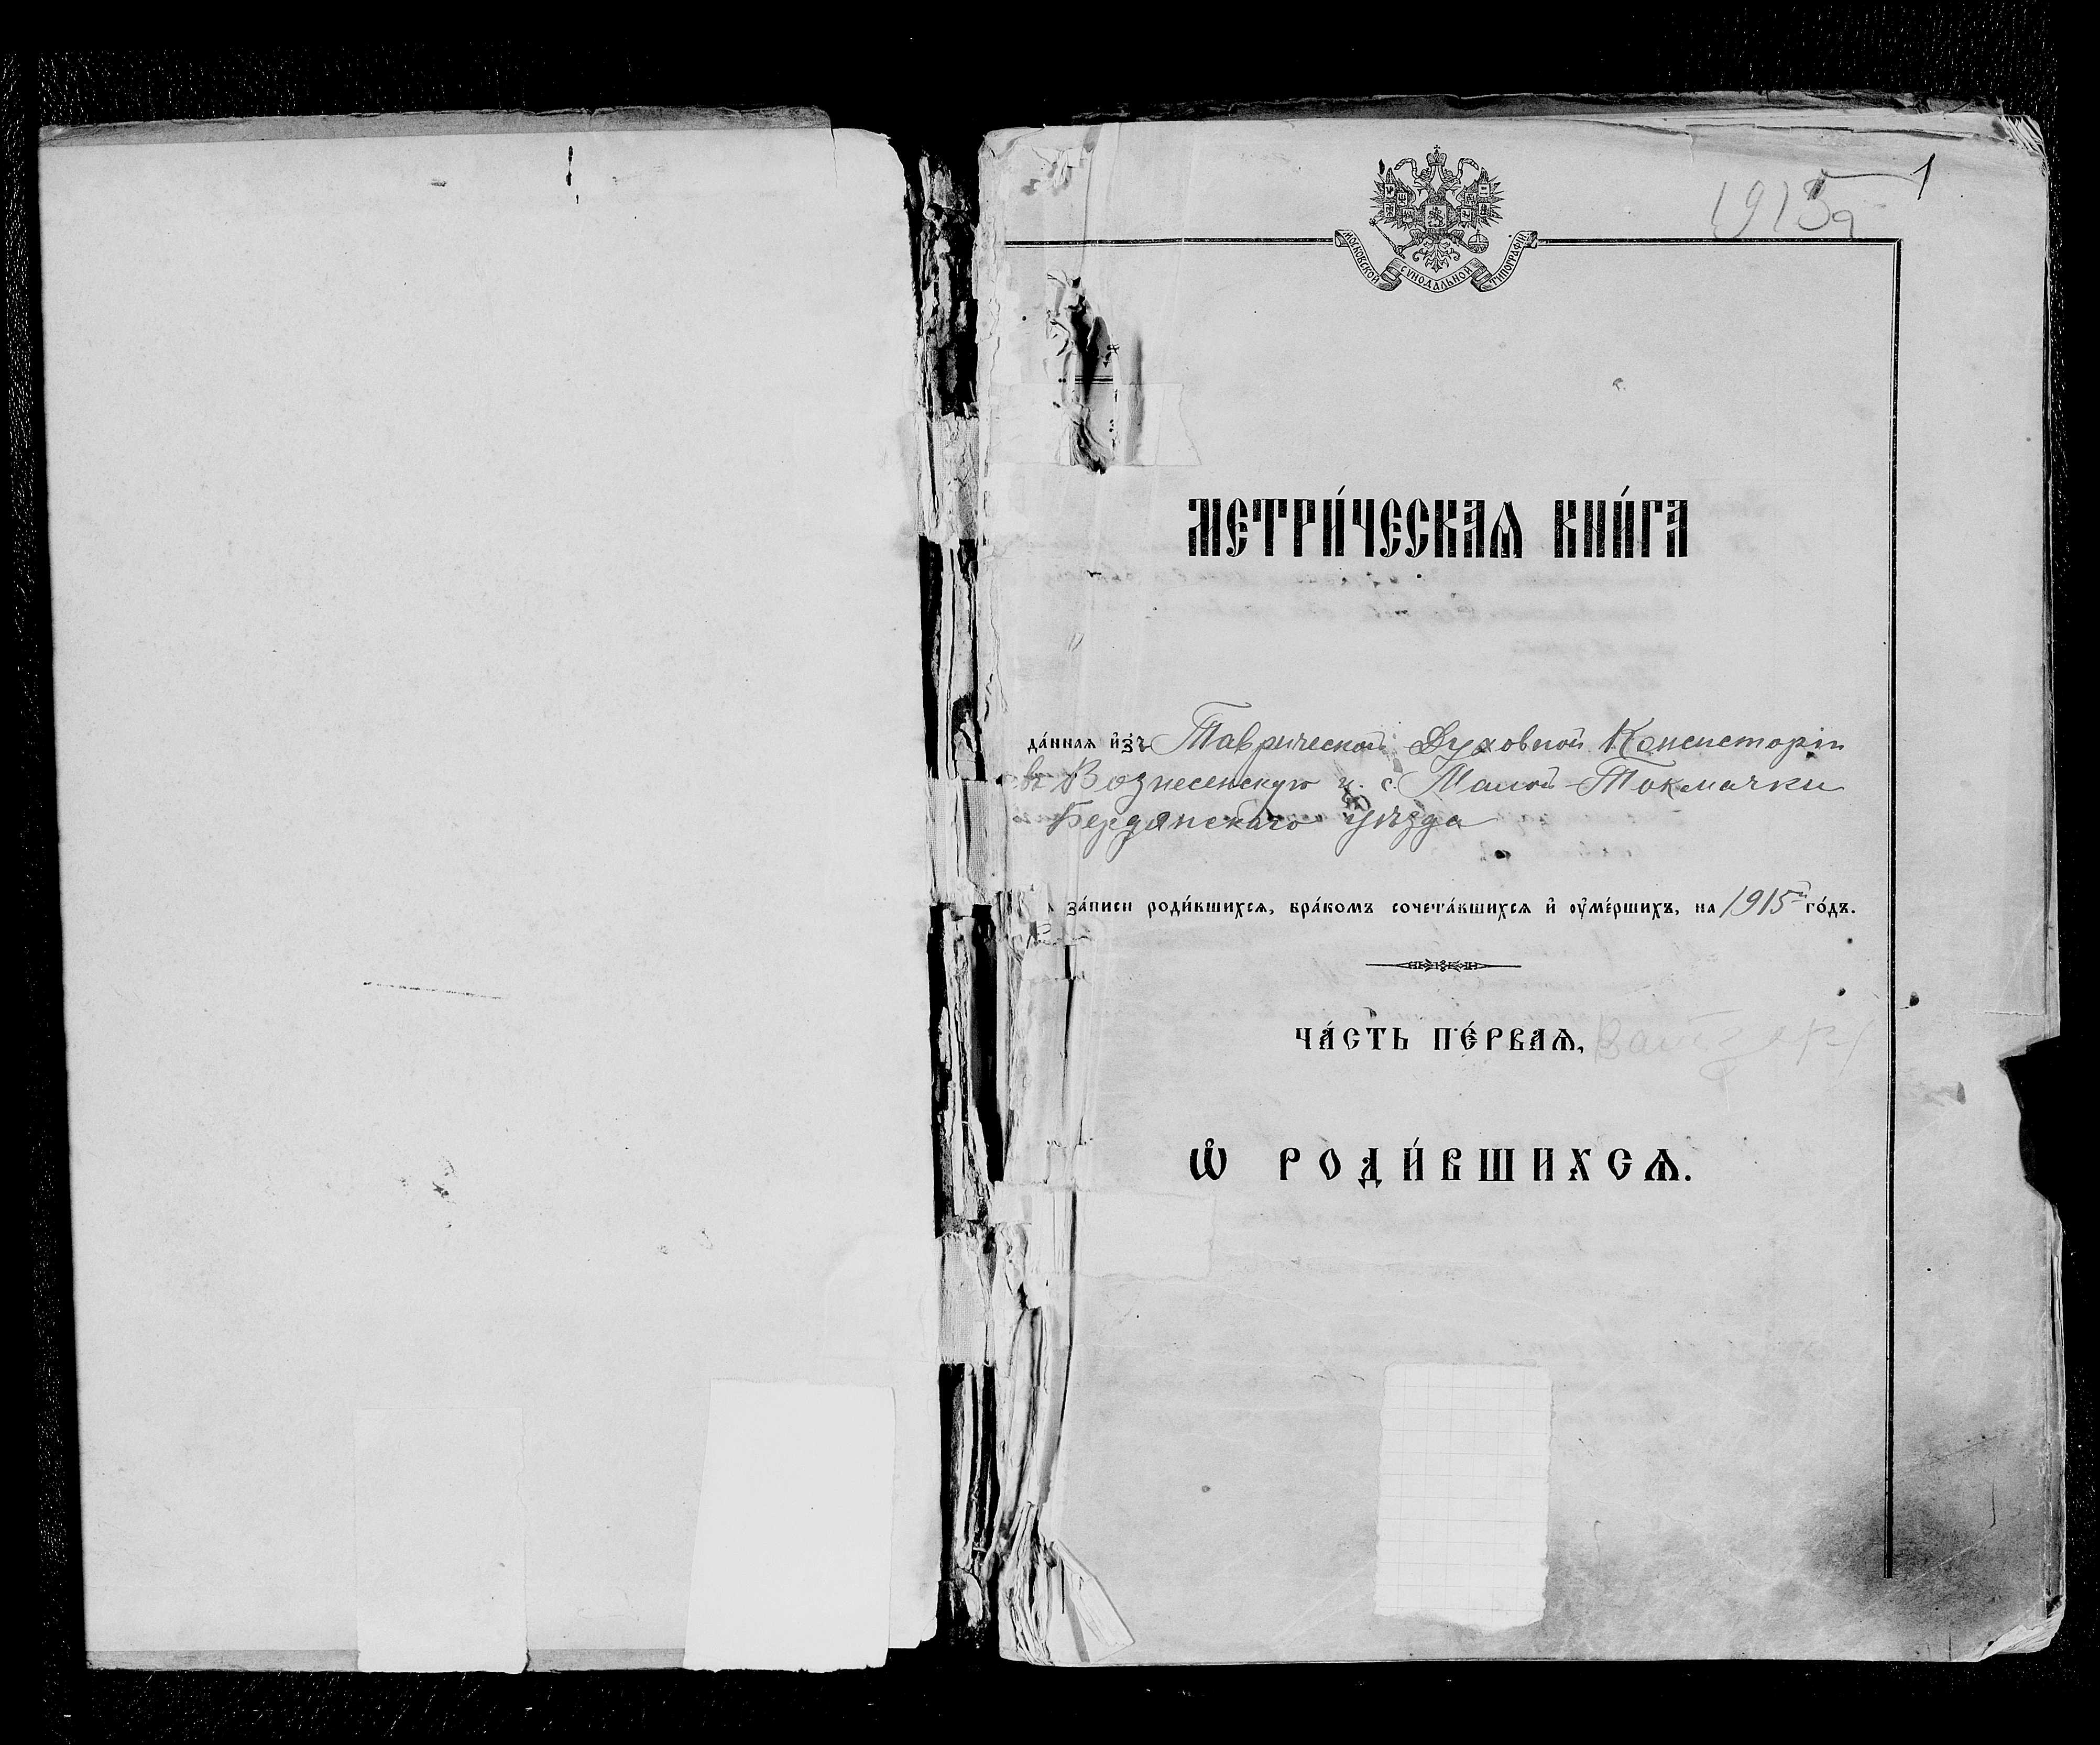 1915 г
1
МОСКОВСКОЙ СѴНОДАЛЬНОЙ ТИПОГРАФІИ
МЕТРИ́ЧЕСКАѦ КНИ́ГА
да́ннаѧ и҆з̾ Таврической Духовной Консисторіи
въ Вознесенскую ц. с. Малой-Токмачки
Бердянскаго уѣзда
за́писи роди́вшихсѧ, бра́комъ сочета́вшихсѧ и҆ ᲂу҆ме́ршихъ, на 1915 го́дъ.
ЧА́СТЬ ПЕ́РВАѦ,
Ѡ҆ РОДИ́ВШИХСѦ.